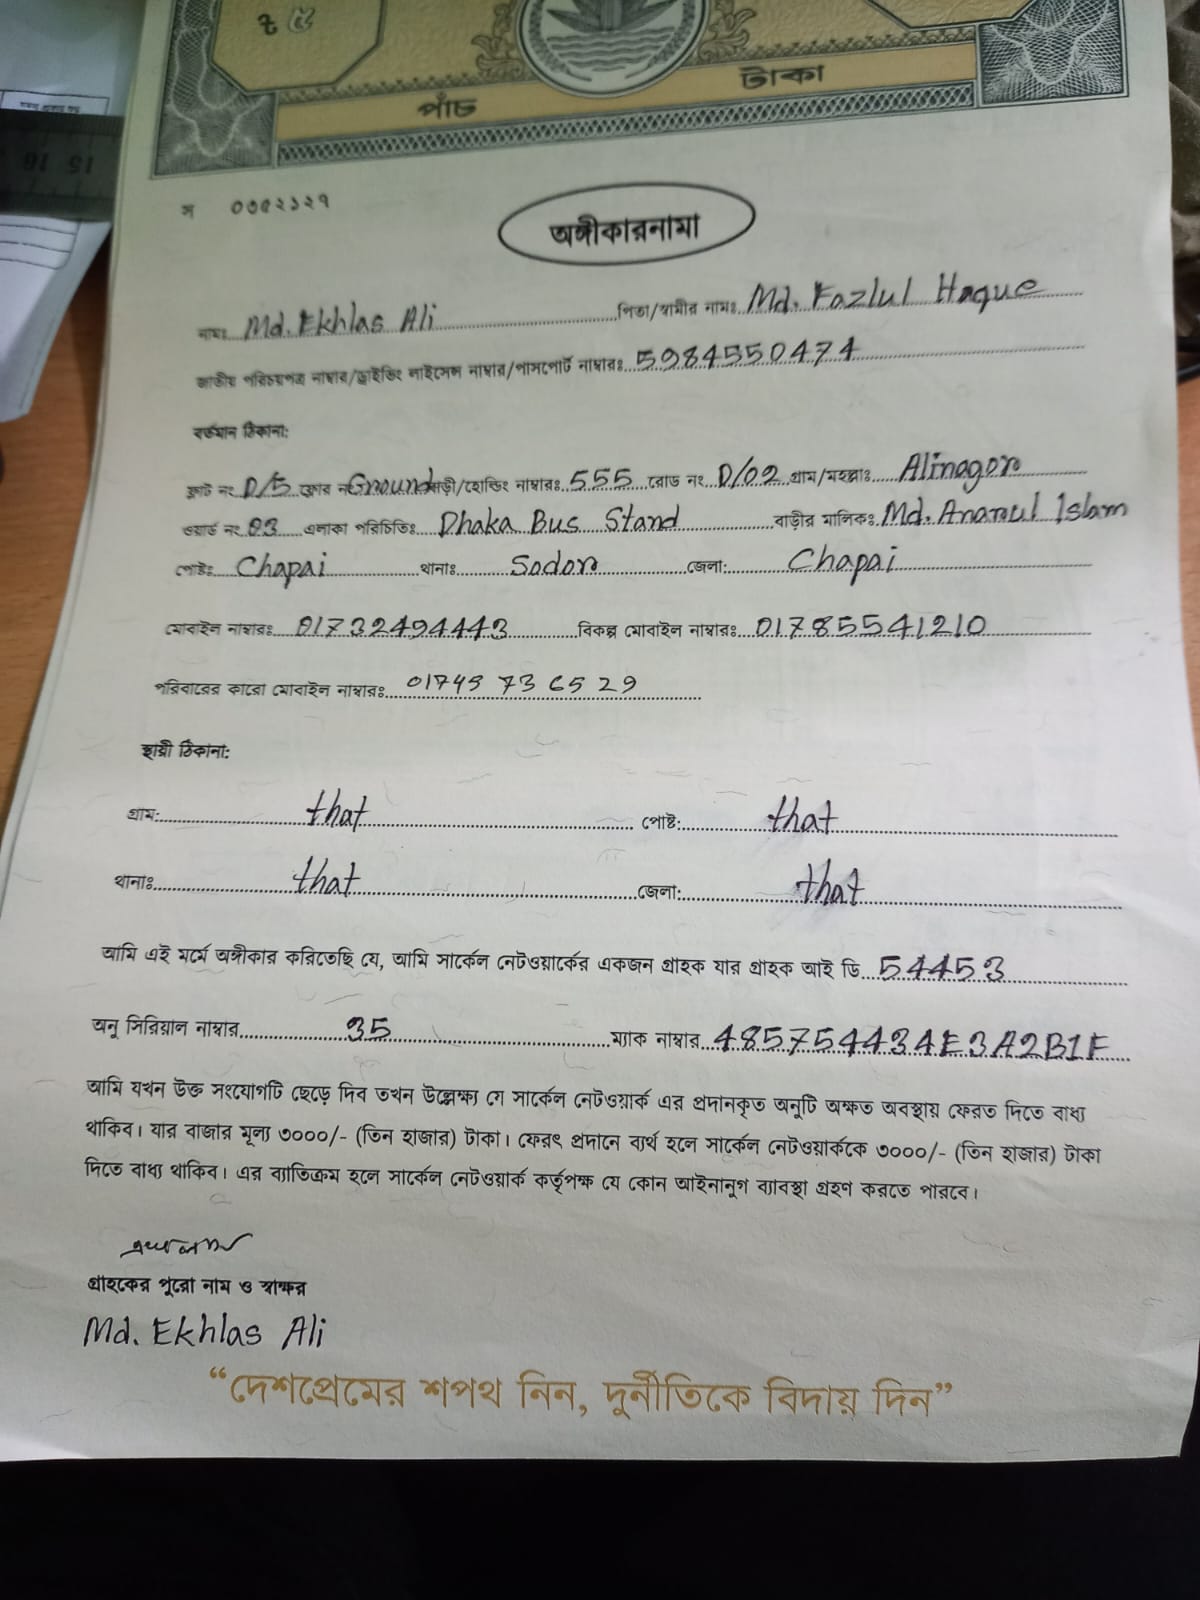 ৳ ৫
পাঁচ টাকা
স ০৩৫২১২৭
অঙ্গীকারনামা
নামঃ Md. Ekhlas Ali পিতা/স্বামীর নামঃ Md. Fazlul Haque
জাতীয় পরিচয়পত্র নাম্বার/ড্রাইভিং লাইসেন্স নাম্বার/পাসপোর্ট নাম্বারঃ 5984550474
বর্তমান ঠিকানা:
ফ্লাট নং D/5 ফ্লোর নং Ground বাড়ী/হোল্ডিং নাম্বারঃ 555 রোড নং D/02 গ্রাম/মহল্লাঃ Alinagor
ওয়ার্ড নং 03 এলাকা পরিচিতিঃ Dhaka Bus Stand বাড়ীর মালিকঃ Md. Anarul Islam
পোষ্টঃ Chapai থানাঃ Sodor জেলা: Chapai
মোবাইল নাম্বারঃ 01732494443 বিকল্প মোবাইল নাম্বারঃ 01785541210
পরিবারের কারো মোবাইল নাম্বারঃ 01745 73 65 29
স্থায়ী ঠিকানা:
গ্রাম: that পোষ্ট: that
থানাঃ that জেলা: that
আমি এই মর্মে অঙ্গীকার করিতেছি যে, আমি সার্কেল নেটওয়ার্কের একজন গ্রাহক যার গ্রাহক আই ডি 54453
অনু সিরিয়াল নাম্বার 35 ম্যাক নাম্বার 485754434E3A2B1F
আমি যখন উক্ত সংযোগটি ছেড়ে দিব তখন উল্লেক্ষ্য যে সার্কেল নেটওয়ার্ক এর প্রদানকৃত অনুটি অক্ষত অবস্থায় ফেরত দিতে বাধ্য
থাকিব। যার বাজার মূল্য ৩০০০/- (তিন হাজার) টাকা। ফেরৎ প্রদানে ব্যর্থ হলে সার্কেল নেটওয়ার্ককে ৩০০০/- (তিন হাজার) টাকা
দিতে বাধ্য থাকিব। এর ব্যাতিক্রম হলে সার্কেল নেটওয়ার্ক কর্তৃপক্ষ যে কোন আইনানুগ ব্যাবস্থা গ্রহণ করতে পারবে।
এখলাস
গ্রাহকের পুরো নাম ও স্বাক্ষর
Md. Ekhlas Ali
“দেশপ্রেমের শপথ নিন, দুর্নীতিকে বিদায় দিন”